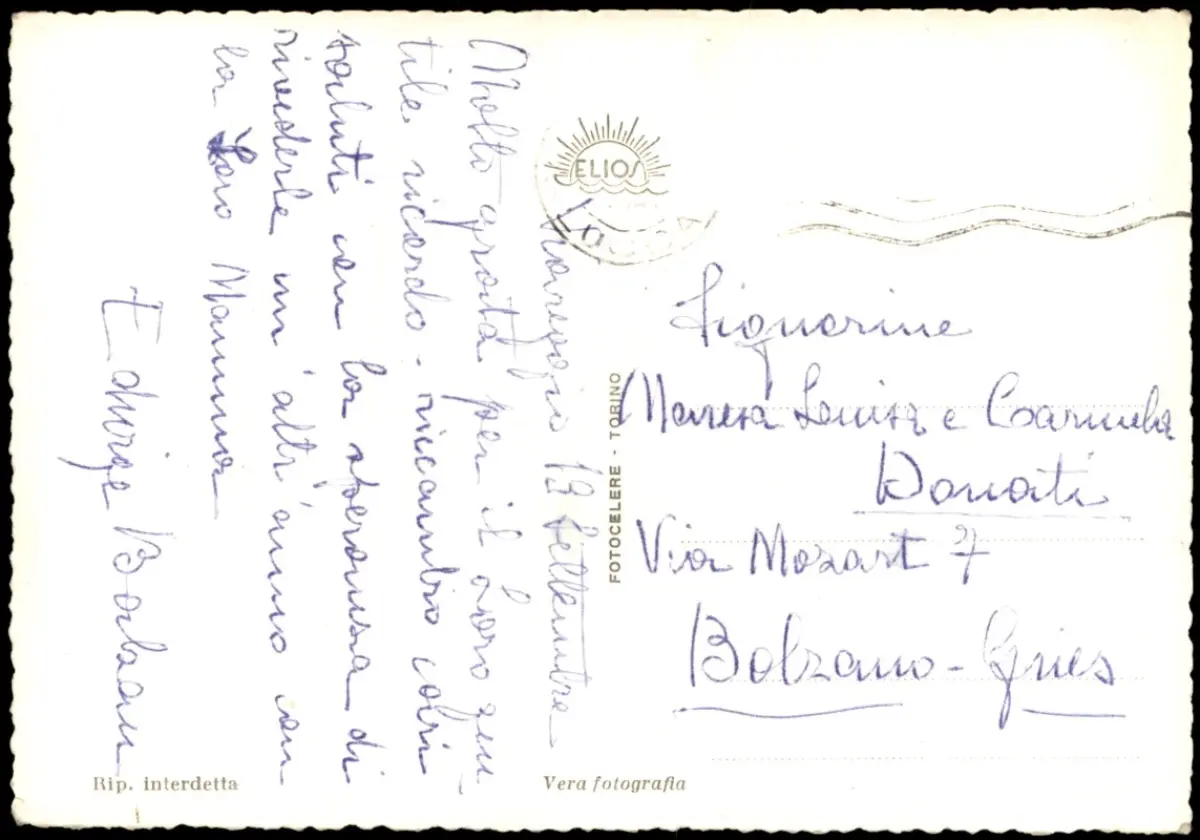 Settembre
Molto grata per il Loro gen
tile ricordo - ricambio cari
saluti con la speranza di
rivederle un' altr' anno con
la Loro Mamma
Edvige
ELIOS
Signorine
Luisa e Carmela
Donati
Via Mozart 7
Bolzano - Gries
FOTOCELERE - TORINO
Rip. interdetta
Vera fotografia